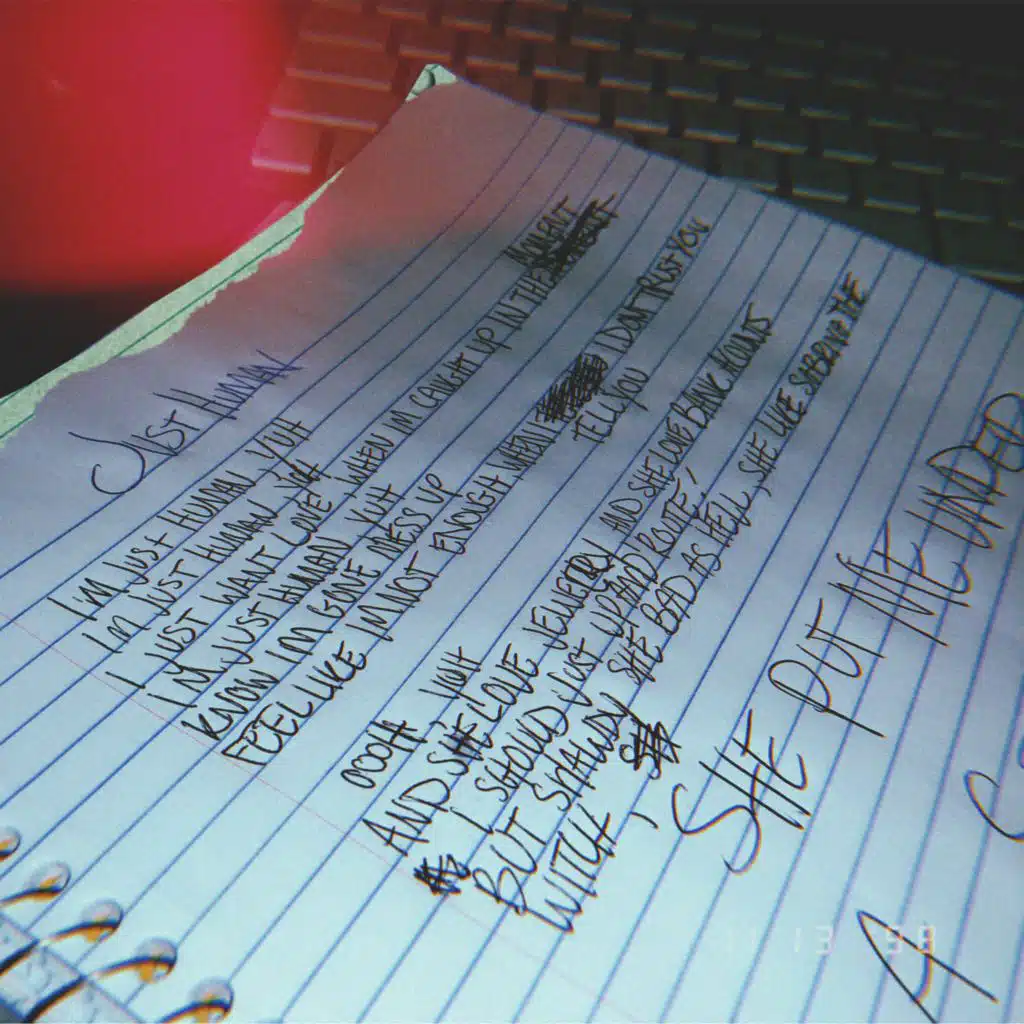 JUST HUMAN
I'M JUST HUMAN YUH
IM JUST HUMAN YUH
I JUST WANT LOVE, WHEN IM CAUGHT UP IN THE MOMENT
I'M JUST HUMAN YUH
KNOW IM GONE MESS UP
FEEL LIKE IM NOT ENOUGH WHEN I TELL YOU I DONT TRUST YOU
OOOH YUH
AND SHE LOVE JEWELRY AND SHE LOVE BANK ACOUNTS
I SHOULD JUST UP AND 'ROUTE'
BUT SHAWDY SHE BAD AS HELL, SHE LIKE SABRINA THE
WITCH,
SHE PUT ME UNDER
A
11 13 '98